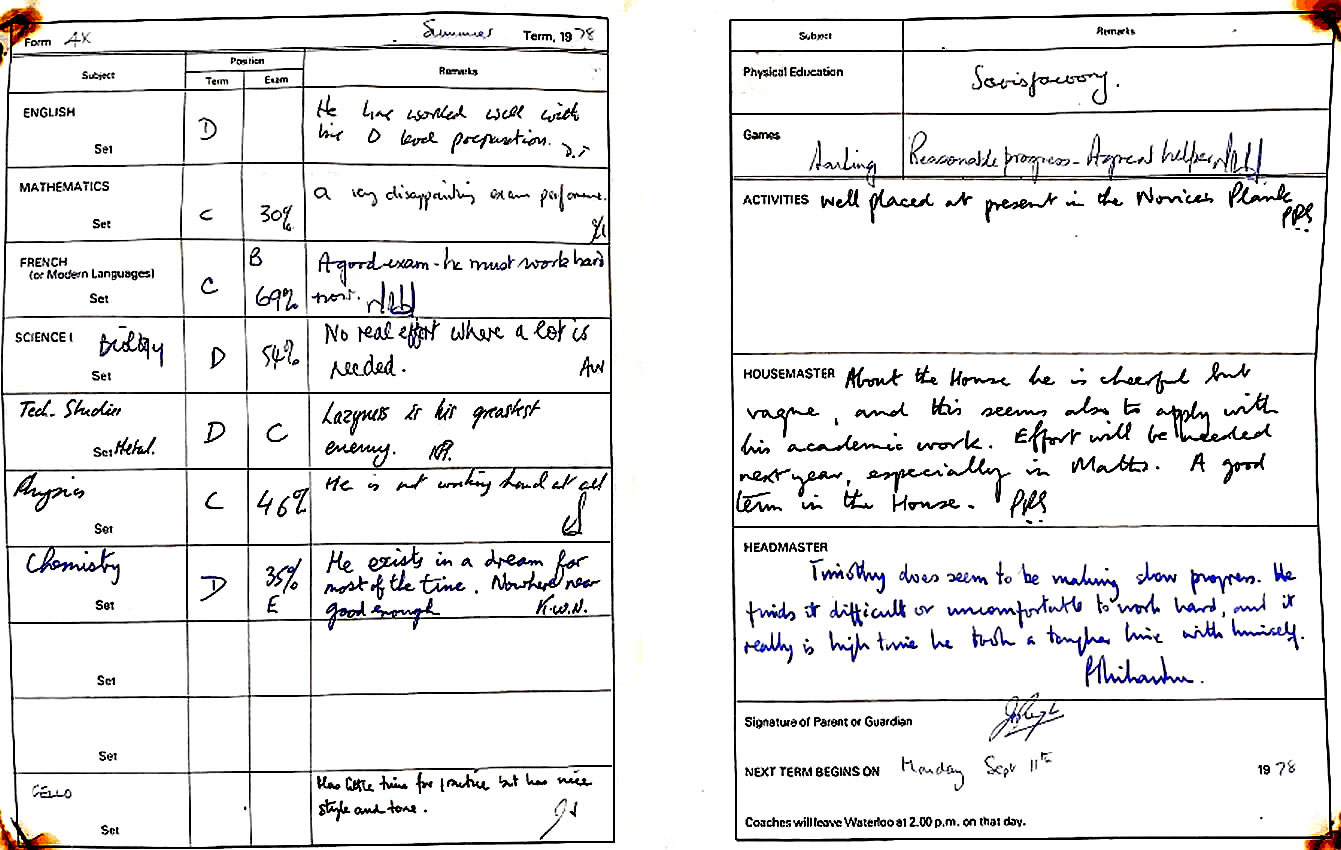 Form 4X Summer Term, 1978
Subject Position Remarks
Term Exam
ENGLISH
Set
D
He has worked well with
his O level preparation. D.T
MATHEMATICS
Set
C 30%
A very disappointing exam performance.
FRENCH
(or Modern Languages)
Set
C
B
69%
A good exam - he must work hard
now.
SCIENCE I Biology
Set
D 54%
No real effort where a lot is
needed. AW
Tech. Studies
Set Metal.
D C
Lazyness is his greatest
enemy.
Physics
Set
C 46%
He is not working hard at all
Chemistry
Set
D
35%
E
He exists in a dream for
most of the time. Nowhere near
good enough K.W.N.
Set
Set
CELLO
Set
Has little time for practice but has nice
style and tone.
Subject Remarks
Physical Education Satisfactory.
Games Sailing Reasonable progress - A great helper
ACTIVITIES Well placed at present in the Novices Plank
PRS
HOUSEMASTER About the House he is cheerful but
vague, and this seems also to apply with
his academic work. Effort will be needed
next year, especially in Maths. A good
term in the House. PRS
HEADMASTER
Timothy does seem to be making slow progress. He
finds it difficult or uncomfortable to work hard, and it
really is high time he took a tougher line with himself.
Signature of Parent or Guardian
NEXT TERM BEGINS ON Monday Sept 11th 1978
Coaches will leave Waterloo at 2.00 p.m. on that day.